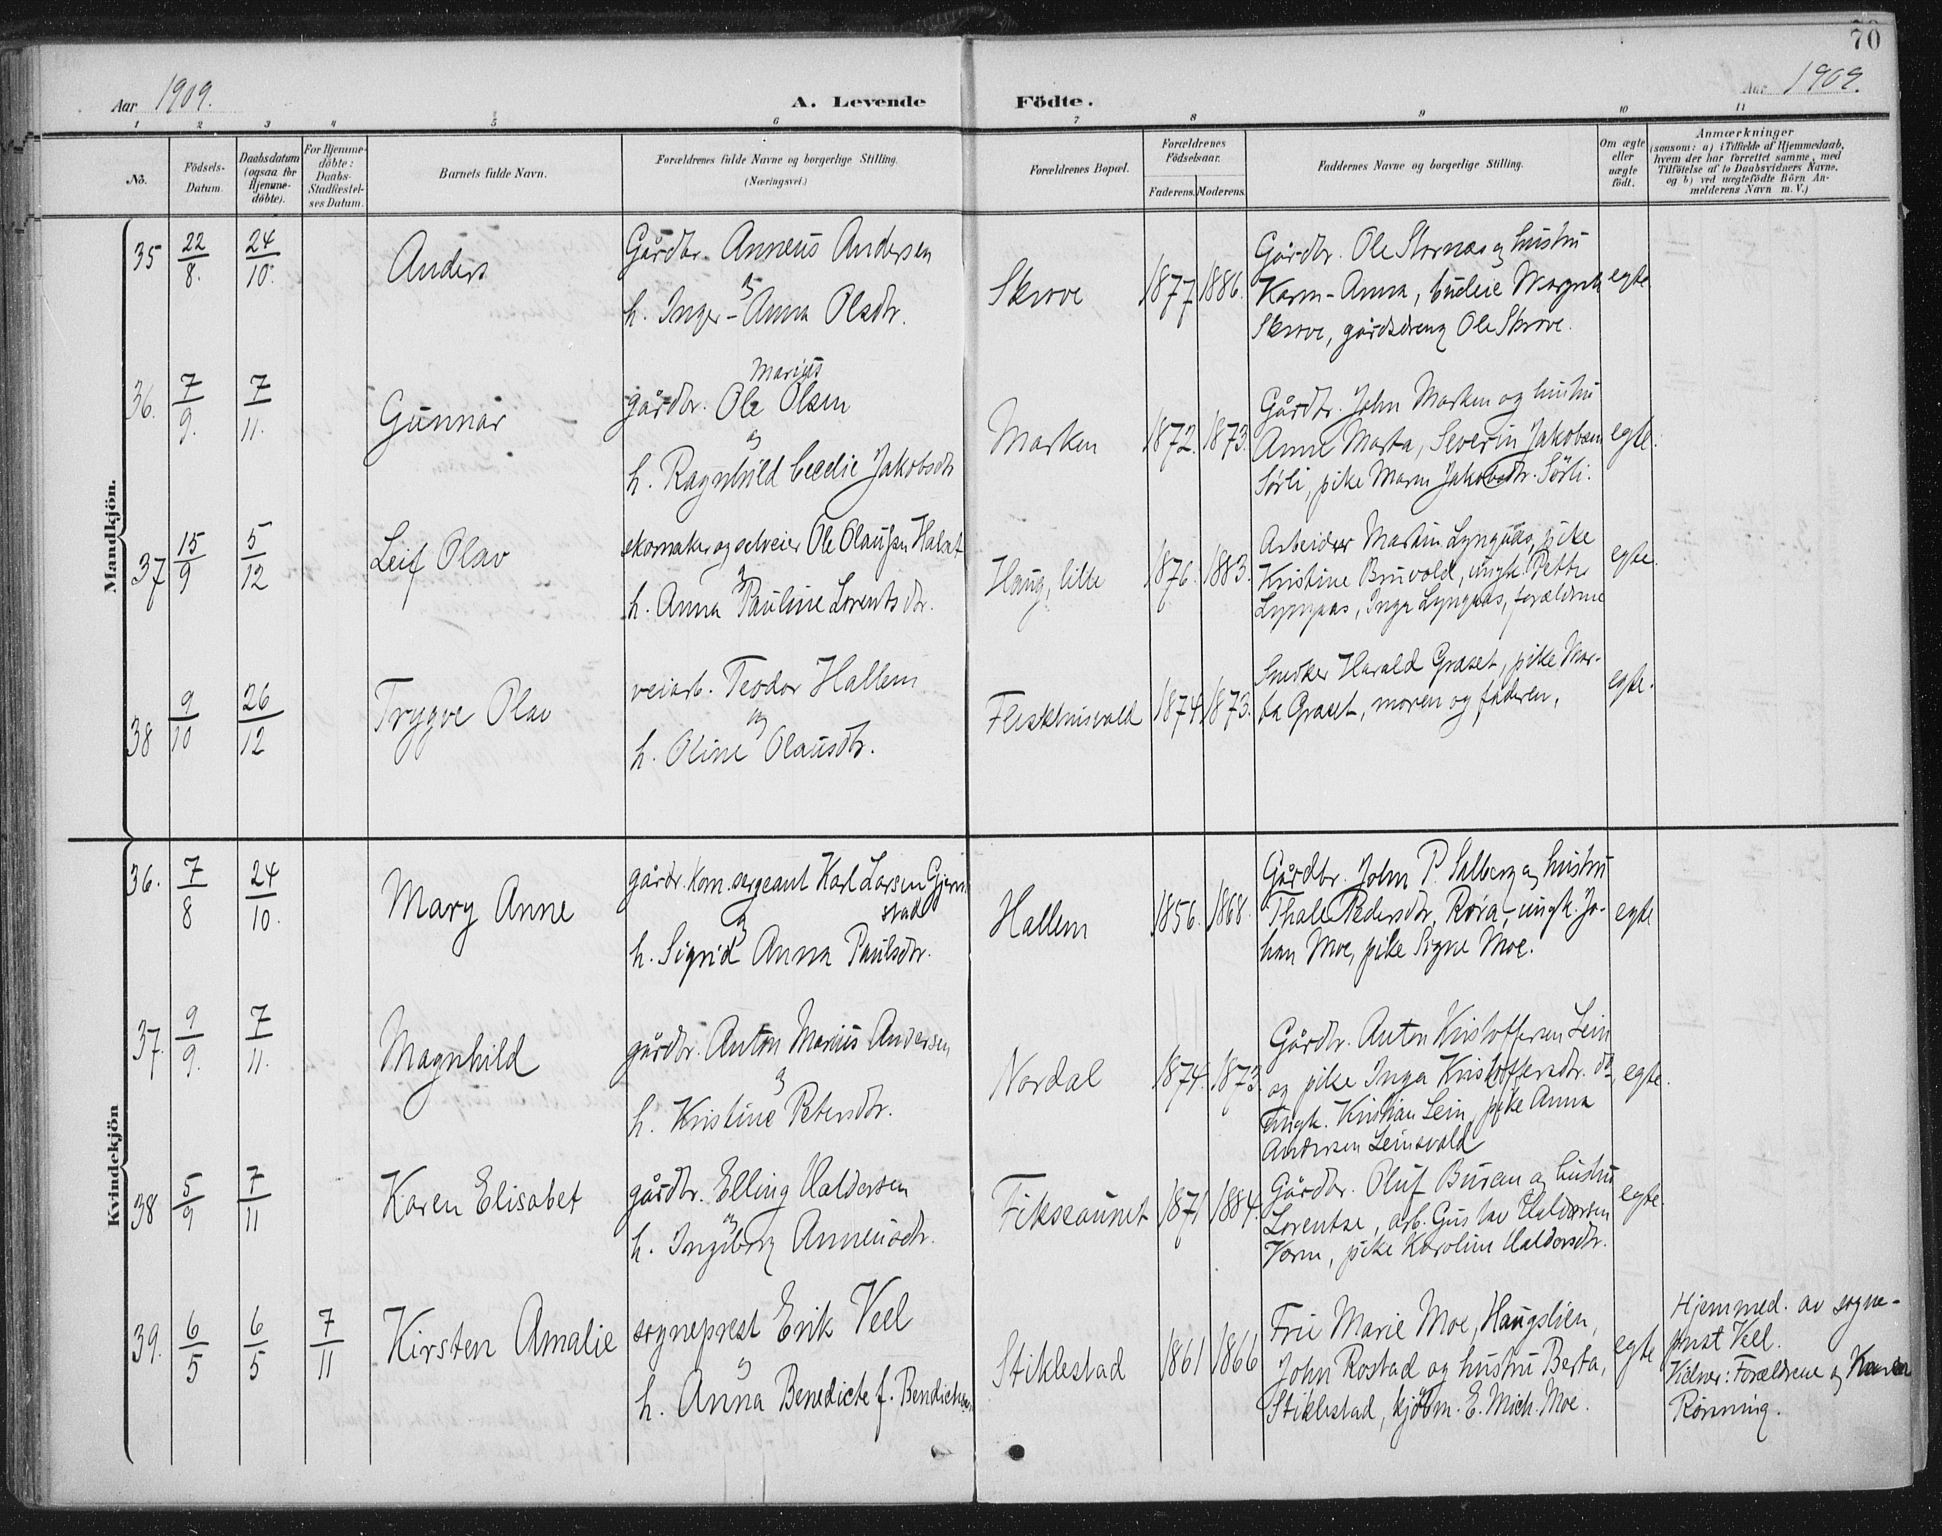 70
Aar 1909.
A. Levende Födte.
Aar 1909.
1 2 3 4 5 6 7 8 9 10 11
No.
Födsels-
Datum.
Daabsdatum
(ogsaa for
Hjemme-
döbte).
For Hjemme-
döbte:
Daabs-
Stadfæstel-
ses Datum.
Barnets fulde Navn.
Forældrenes fulde Navne og borgerlige Stilling.
(Næringsvei.)
Forældrenes Bopæl.
Forældrenes
Födselsaar.
Faderens. Moderens.
Faddernes Navne og borgerlige Stilling.
Om ægte
eller
uægte
födt.
Anmærkninger
(saasom: a) i Tilfælde af Hjemmedaab,
hvem der har forrettet samme, med
Tilföielse af to Daabsvidners Navne,
og b) ved uægtefödte Börn An-
melderens Navn m. V.)
Mandkjön.
35 22/8. 24/10. Anders
Gårdbr. Anneus Andersen
og
h. Inger-Anna Olsdtr.
Skrove 1877 1886.
Gårdbr. Ole Stornæs og hustru
Karen-Anna, budeie
Skrove, gårdsdreng Ole Skrove.
egte
36. 7/9. 7/11. Gunnar
Marius
gårdbr. Ole Olsen
og
h. Ragnhild Jakobsdtr
Marken 1872. 1873.
Gårdbr. John Marken og hustru
Anne Marta, Severin Jakobsen
Sörli, pike Maren Jakobsdtr. Sörli.
egte.
37 15/9 5/12 Leif Olav
skomaker og selveier Ole Olaussen
og
h. Anna Pauline Lorentsdtr.
Haug, lille 1876. 1883.
Arbeider Martin Lyngaas, pike
Kristine Bruvold, ungk. Petter
Lyngaas, Inga Lyngaas, forældrene
egte.
38 9/10 26/12 Trygve Olav
veiarb. Teodor Hallem
og
h. Oline Olausdtr.
1874. 1873.
Snedker Harald Græset, pike Mar-
ta Græset, moren og faderen.
egte.
Kvindekjön
36. 7/8 24/10. Mary Anne
gårdbr. kom.sergeant Karl Larsen Gjern
stad
og
h. Sigrid Anna Paulsdtr.
Hallem 1856. 1868.
Gårdbr. John P. Salberg og hustru
Thale Pedersdtr, Röra, ungk. Jo-
han Moe, pike Signe Moe.
egte
37. 9/9. 7/11. Magnhild
gårdbr. Anton Marius Andersen
og
h. Kristine Petersdtr.
Nordal 1874. 1873.
Gårdbr. Anton Kristoffersen Lein
og pike Inga Kristoffersdtr. do,
ungk. Kristian Lein, pike Anna
Andersen Leinsvald
egte.
38 5/9 7/11 Karen Elisabet
gårdbr. Elling Haldorsen
og
h. Ingeborg Anneusdtr.
1871 1884.
Gårdbr. Oluf Buran og hustru
Lorentse, arb. Gustav Haldorsen
pike Karoline Haldorsdtr.
egte.
39. 6/5 6/5 7/11 Kirsten Amalie
sogneprest Erik Veel
og
h. Anna Benedicte f. Bendichsen
Stiklestad 1861 1866
Fru Marie Moe, Haugslien,
John Rostad og hustru Berta,
Stiklestad, kjöbm. E. Mich. Moe.
egte
Hjemmed. av sogne-
prest Veel.
Vidner: Forældrene og Karen
Rönning.